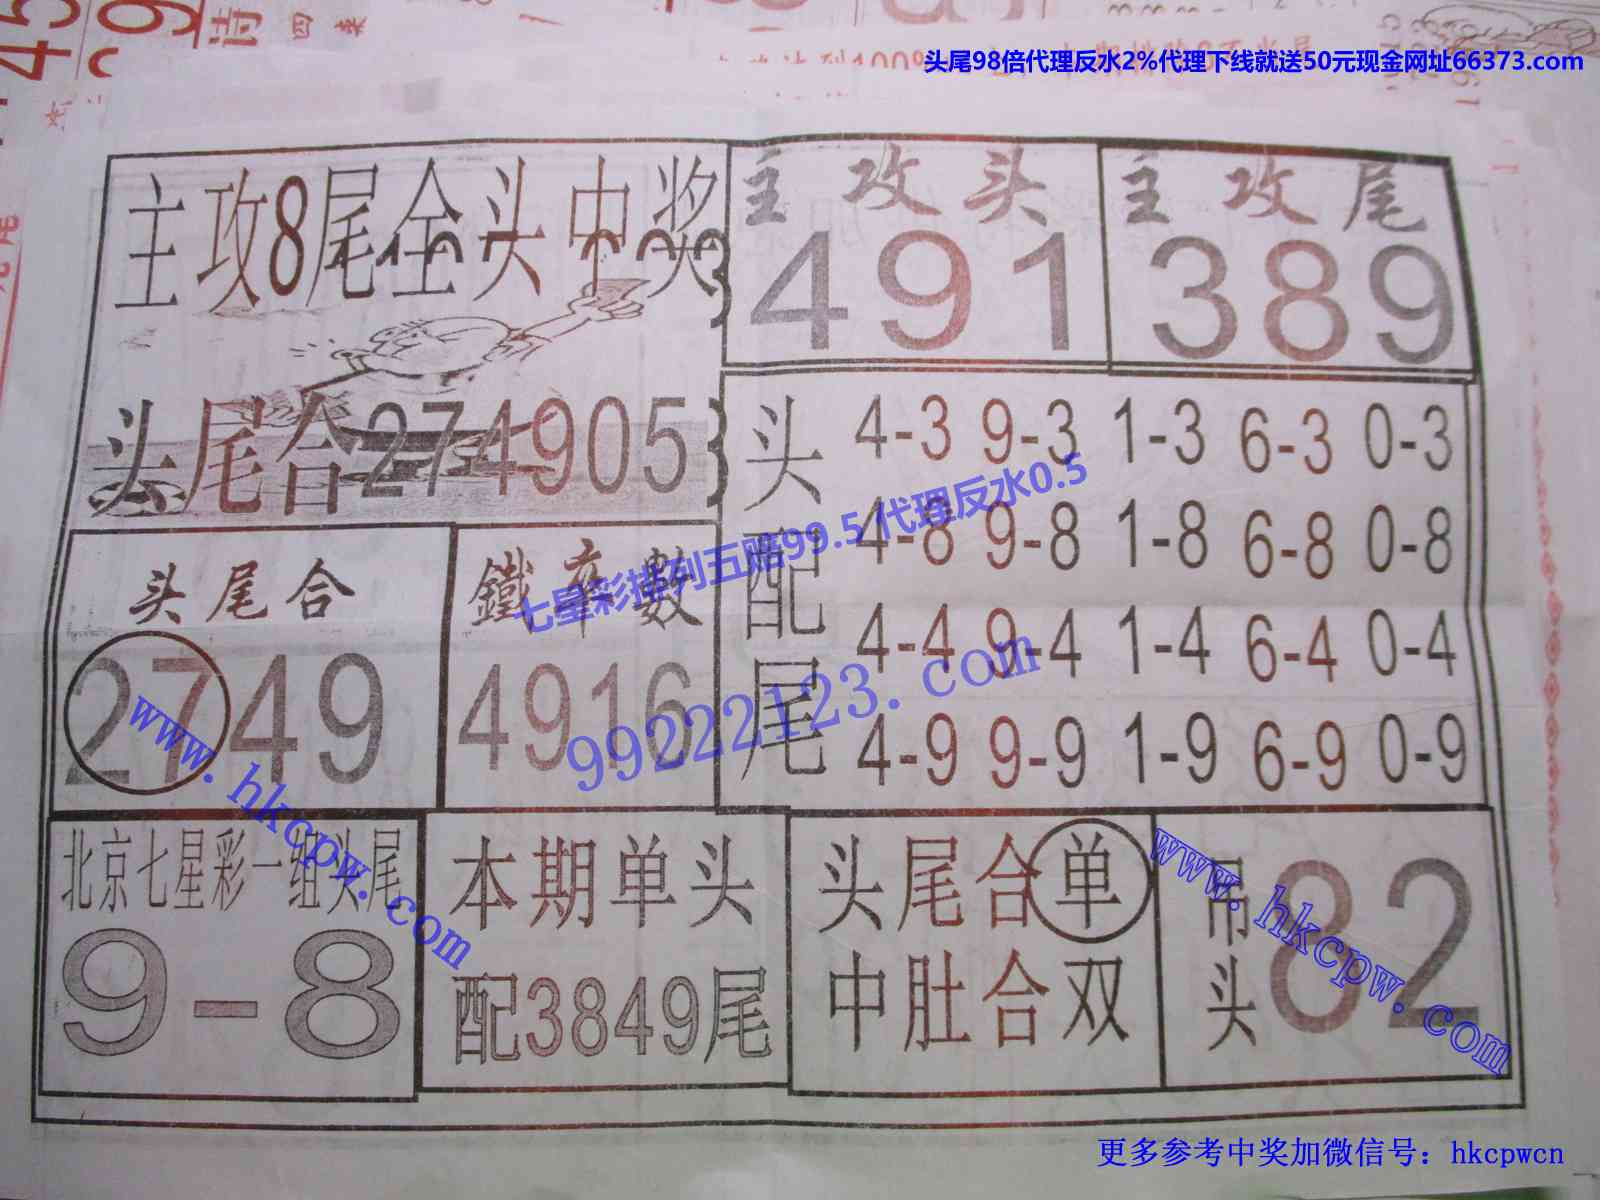 头尾98倍代理反水2%代理下线就送50元现金网址66373.com
诗 四 来
主攻8尾全头中奖
主 攻 头
491
主 攻 尾
389
头尾合274905
头配尾
4-3 9-3 1-3 6-3 0-3
4-8 9-8 1-8 6-8 0-8
4-4 9-4 1-4 6-4 0-4
4-9 9-9 1-9 6-9 0-9
七星彩排列五赔99.5 代理反水0.5
头 尾 合
2749
鐵 率 數
4916
99222123.com
www.hkcpw.com
北京七星彩一组头尾
9-8
本期单头
配3849尾
头尾合单
中肚合双
吊头
82
www.hkcpw.com
更多参考中奖加微信号：hkcpwcn